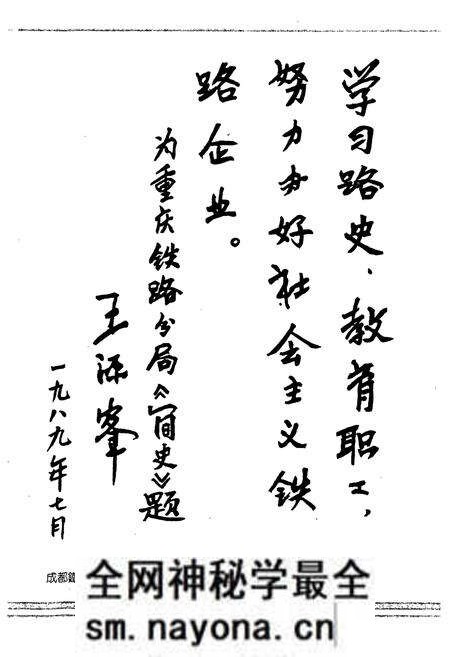 学习路史、教育职工，
努力办好社会主义铁
路企业。
为重庆铁路分局《简史》题
王
一九八九年七月
成都
全网神秘学最全
sm.nayona.cn